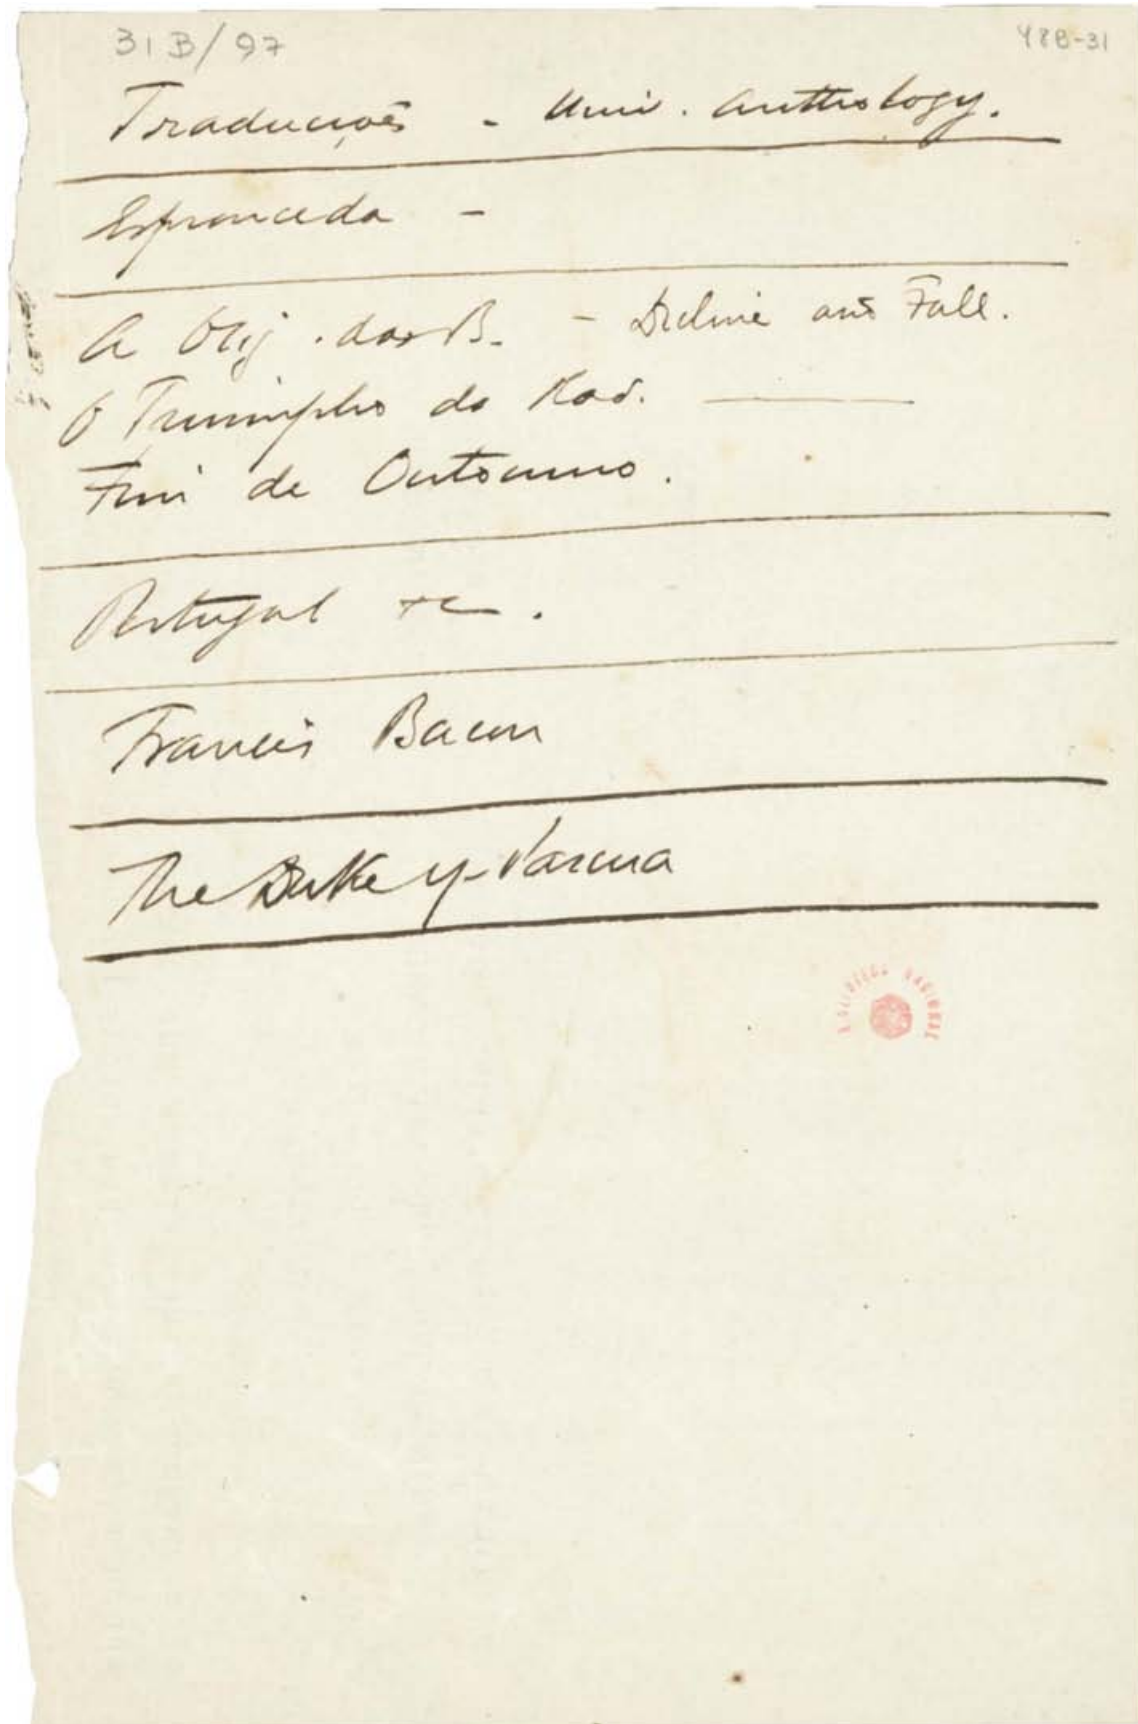 31B/97 48B-31
Traducções - Univ. Anthology.
Espronceda -
A Olig. das B. - Decline and Fall.
O Triumpho do
Fim de Outomno.
Portugal etc.
Francis Bacon
The Duke of Parma
BIBLIOTECA NACIONAL